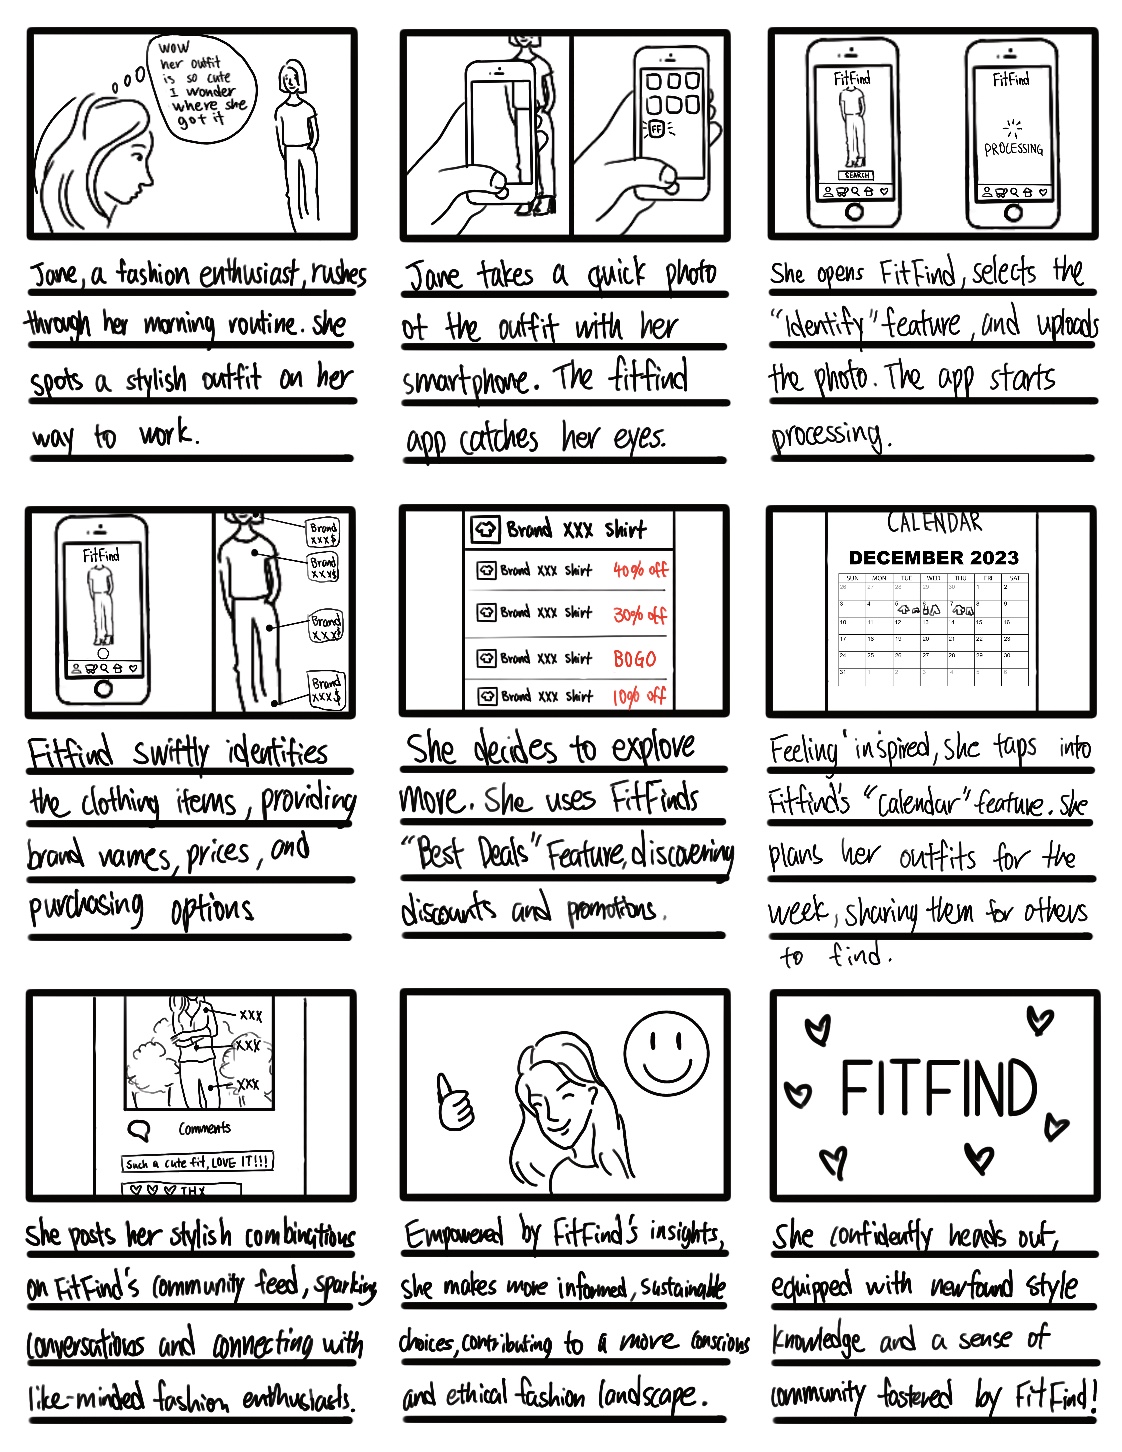 WOW
her outfit
is so cute
I wonder
where she
got it
Jane, a fashion enthusiast, rushes
through her morning routine. she
spots a stylish outfit on her
way to work.
FF
Jane takes a quick photo
of the outfit with her
smartphone. The fitfind
app catches her eyes.
FitFind
SEARCH
FitFind
PROCESSING
She opens FitFind, selects the
"Identify" feature, and uploads
the photo. The app starts
processing.
FitFind
Brand
xxx$
Brand
xxx$
Brand
xxx$
Brand
xxx$
Fitfind swiftly identifies
the clothing items, providing
brand names, prices, and
purchasing options
Brand XXX Shirt
Brand XXX Shirt 40% off
Brand XXX Shirt 30% off
Brand XXX Shirt BOGO
Brand XXX Shirt 10% off
She decides to explove
more. She uses FitFinds
"Best Deals" Feature, discovering
discounts and promotions.
CALENDAR
DECEMBER 2023
SUN MON TUE WED THU FRI SAT
26 27 28 29 30 1 2
3 4 5 6 7 8 9
10 11 12 13 14 15 16
17 18 19 20 21 22 23
24 25 26 27 28 29 30
31 1 2 3 4 5 6
Feeling inspired, she taps into
Fitfind's "Calendar" feature. She
plans her outfits for the
week, sharing them for others
to find.
XXX
XXX
XXX
Comments
Such a cute fit, LOVE IT!!!
THX
She posts her stylish combinations
on FitFind's community feed, sparking
conversations and connecting with
like-minded fashion enthusiasts.
Empowered by FitFind's insights,
she makes more informed, sustainable
choices, contributing to a more conscious
and ethical fashion landscape.
FITFIND
She confidently heads out,
equipped with newfound style
knowledge and a sense of
community fostered by FitFind!